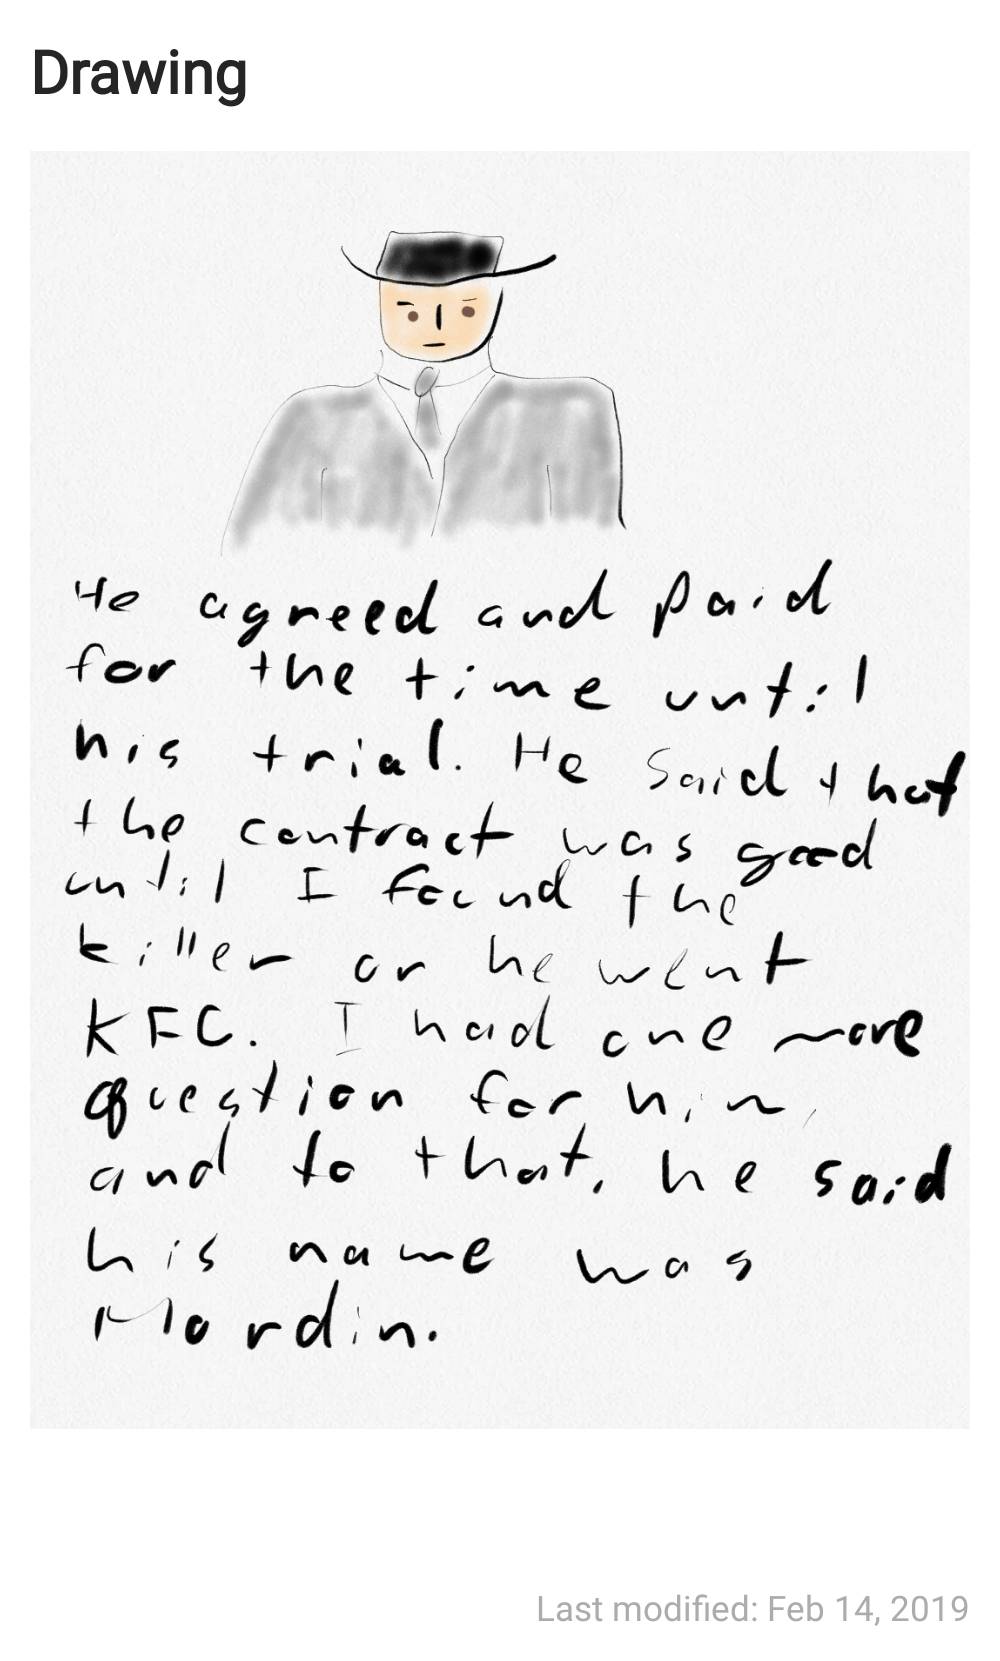 Drawing
He agreed and paid
for the time until
his trial. He said that
the contract was good
until I found the
killer or he went
KFC. I had one more
question for him,
and to that, he said
his name was
Mordin.
Last modified: Feb 14, 2019